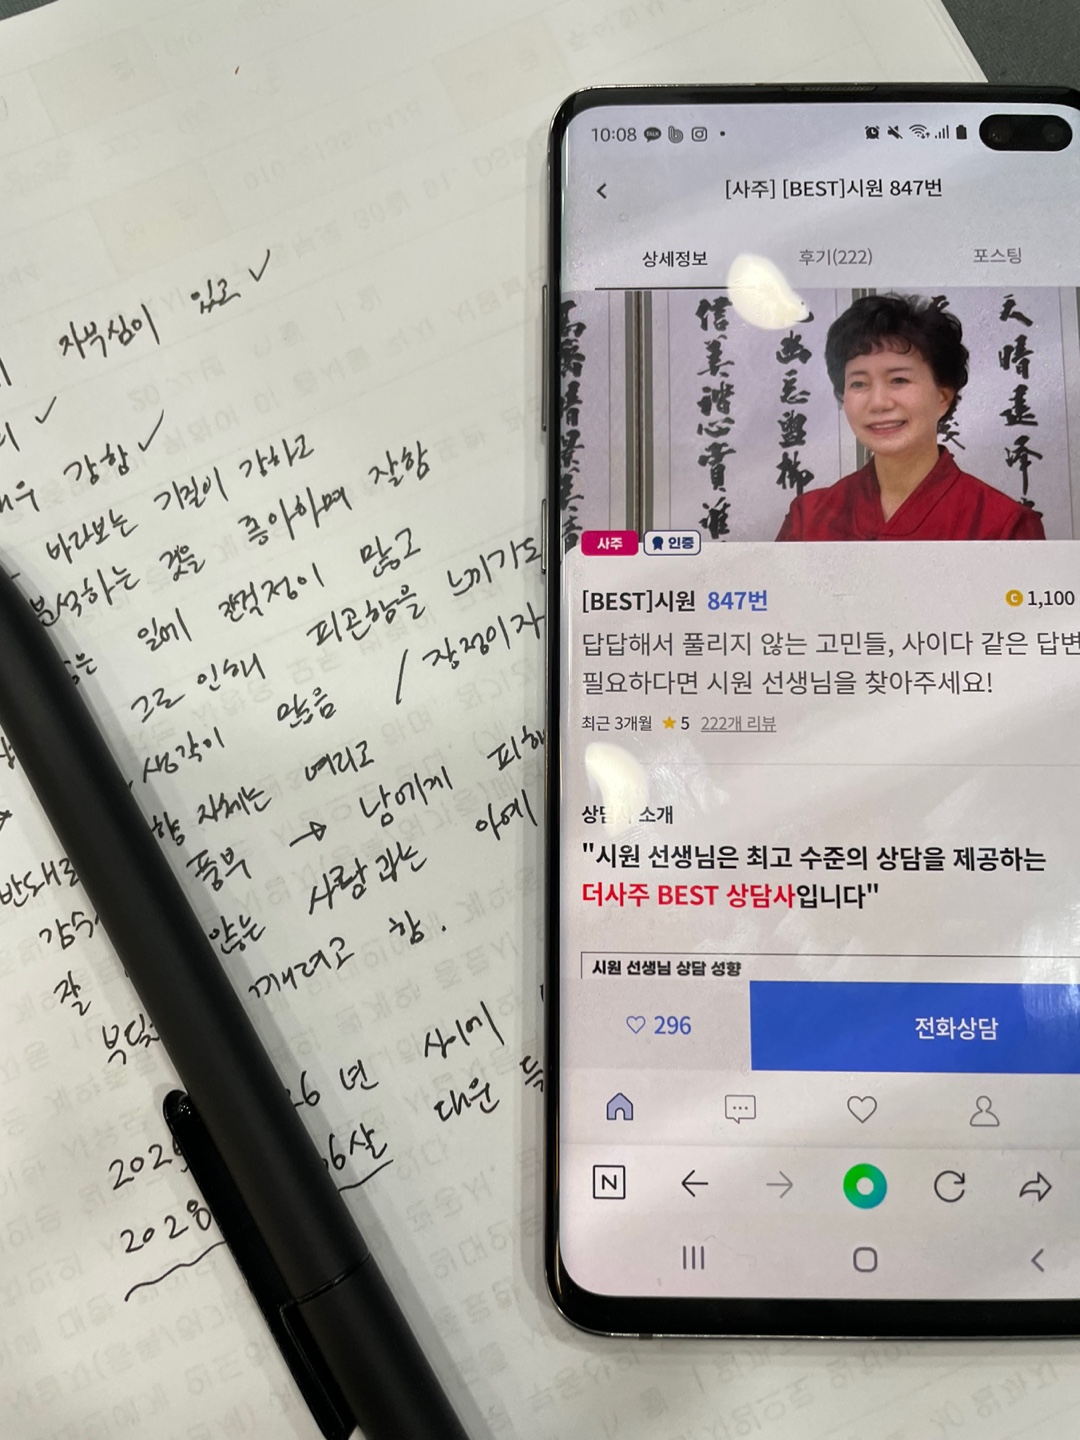 자부심이 있고 ✓
✓
강함 ✓
바라보는 기질이 강하고
분석하는 것을 좋아하며 잘함
일에 걱정이 많고
그로 인해 피곤함을 느끼기도
생각이 많음 / 장점이자
자체는 여리고
풍부 → 남에게 피해
않는 사람과는 아예
반대로
감수
잘
깨려고 함.
부딪
26년 사이에
36살 대운
2028
10:08
[사주] [BEST]시원 847번
상세정보 후기(222) 포스팅
信美諧心賞誰
幽忘盥櫛
天晴遠峰
사주 인증
[BEST]시원 847번 C 1,100
답답해서 풀리지 않는 고민들, 사이다 같은 답변
필요하다면 시원 선생님을 찾아주세요!
최근 3개월 ★ 5 222개 리뷰
상담사 소개
"시원 선생님은 최고 수준의 상담을 제공하는
더사주 BEST 상담사입니다"
시원 선생님 상담 성향
♡ 296 전화상담
N